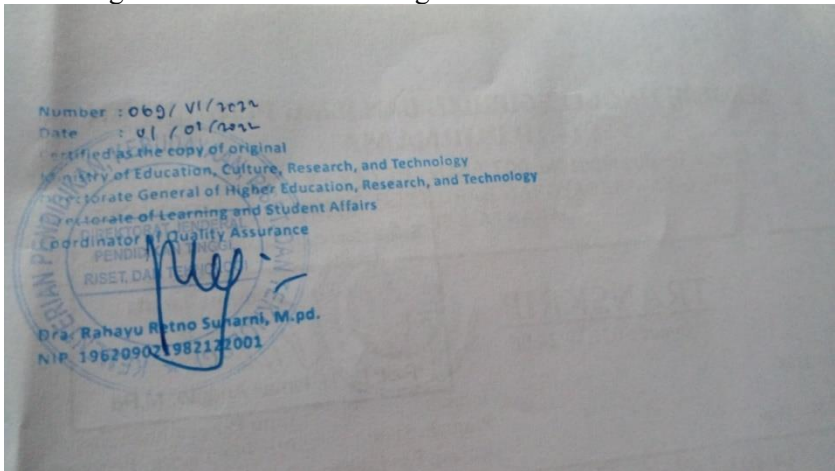 Number : 069/ VI/2022
Date : 01 / 01 /2022
Certified as the copy of original
Ministry of Education, Culture, Research, and Technology
Directorate General of Higher Education, Research, and Technology
Directorate of Learning and Student Affairs
Coordinator of Quality Assurance
DIREKTORAT JENDERAL
PENDIDIKAN TINGGI
RISET, DAN TEKNOLOGI
Dra. Rahayu Retno Sunarni, M.pd.
NIP. 196209021982122001
TRANSKRIP